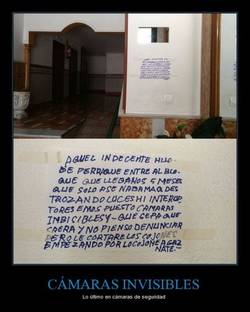 AQUEL INDECENTE HIJO
DE PERRA QUE ENTRE AL BLO-
QUE QUE LLEBANOS 5 MESES
QUE SOLO ASE NADAMAQ DES
TROZANDO LUCES HI INTERRUP
TORES EMOS PUESTO CAMARAS
INBICIBLES Y-QUE SEPA QUE
CAERA Y NO PIENSO DENUNCIAR
PERO LE CORTARE LOS COJONES
EMPEZANDO POR LO COJONE A GAZ
NATE.
CÁMARAS INVISIBLES
Lo último en cámaras de seguridad